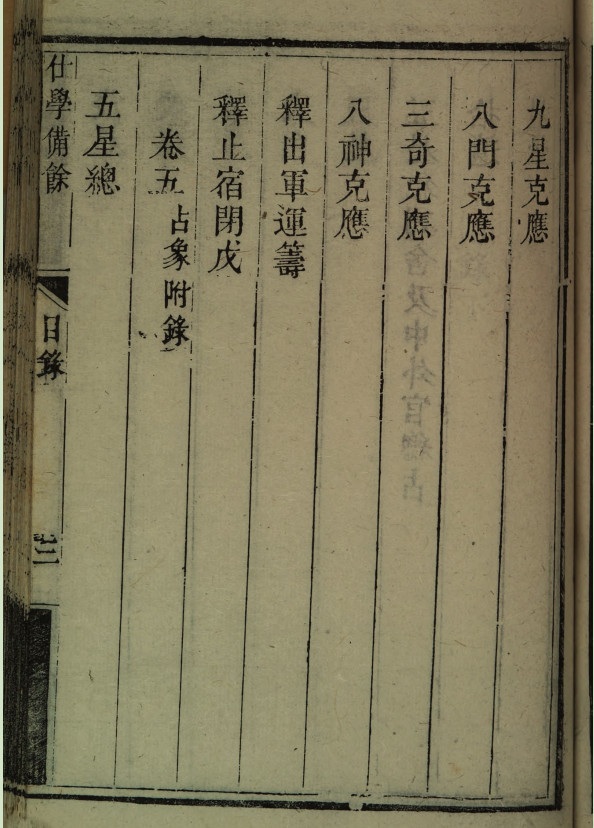 九星克應
八門克應
三奇克應
八神克應
釋出軍運籌
釋止宿閉戊
卷五 占象附錄
五星總
仕學備餘
目錄